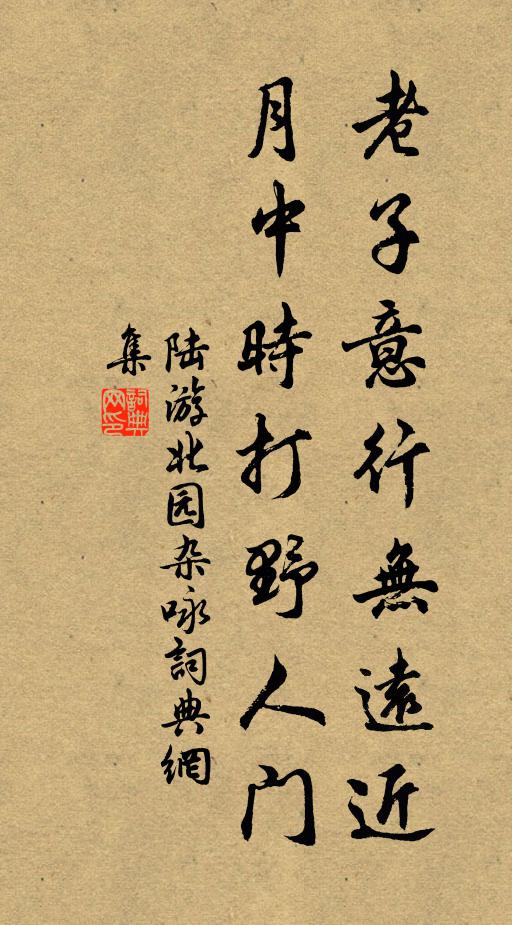 老子意行無遠近
月中時打野人门
陆游北园杂咏詞典網
集
詞典
网印